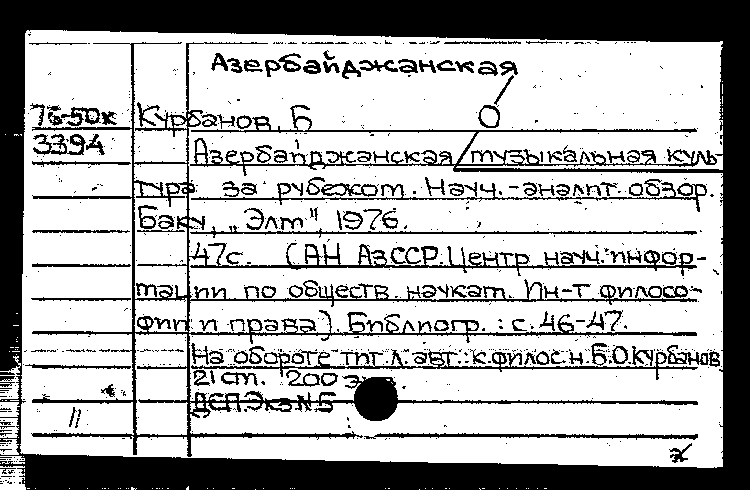 Азербайджанская
О
76-50к Курбанов, Б
3394
Азербайджанская музыкальная куль-
тура за рубежом. Науч.-аналит. обзор.
Баку, „Элм", 1976.
47с. (АН АзССР. Центр науч. инфор-
мации по обществ. наукам. Ин-т филосо-
фии и права). Библиогр.: с. 46-47.
На обороте тит. л. авт.: к. филос. н. Б.О. Курбанов
21 см. 200
ДСП. Экз N Б
11